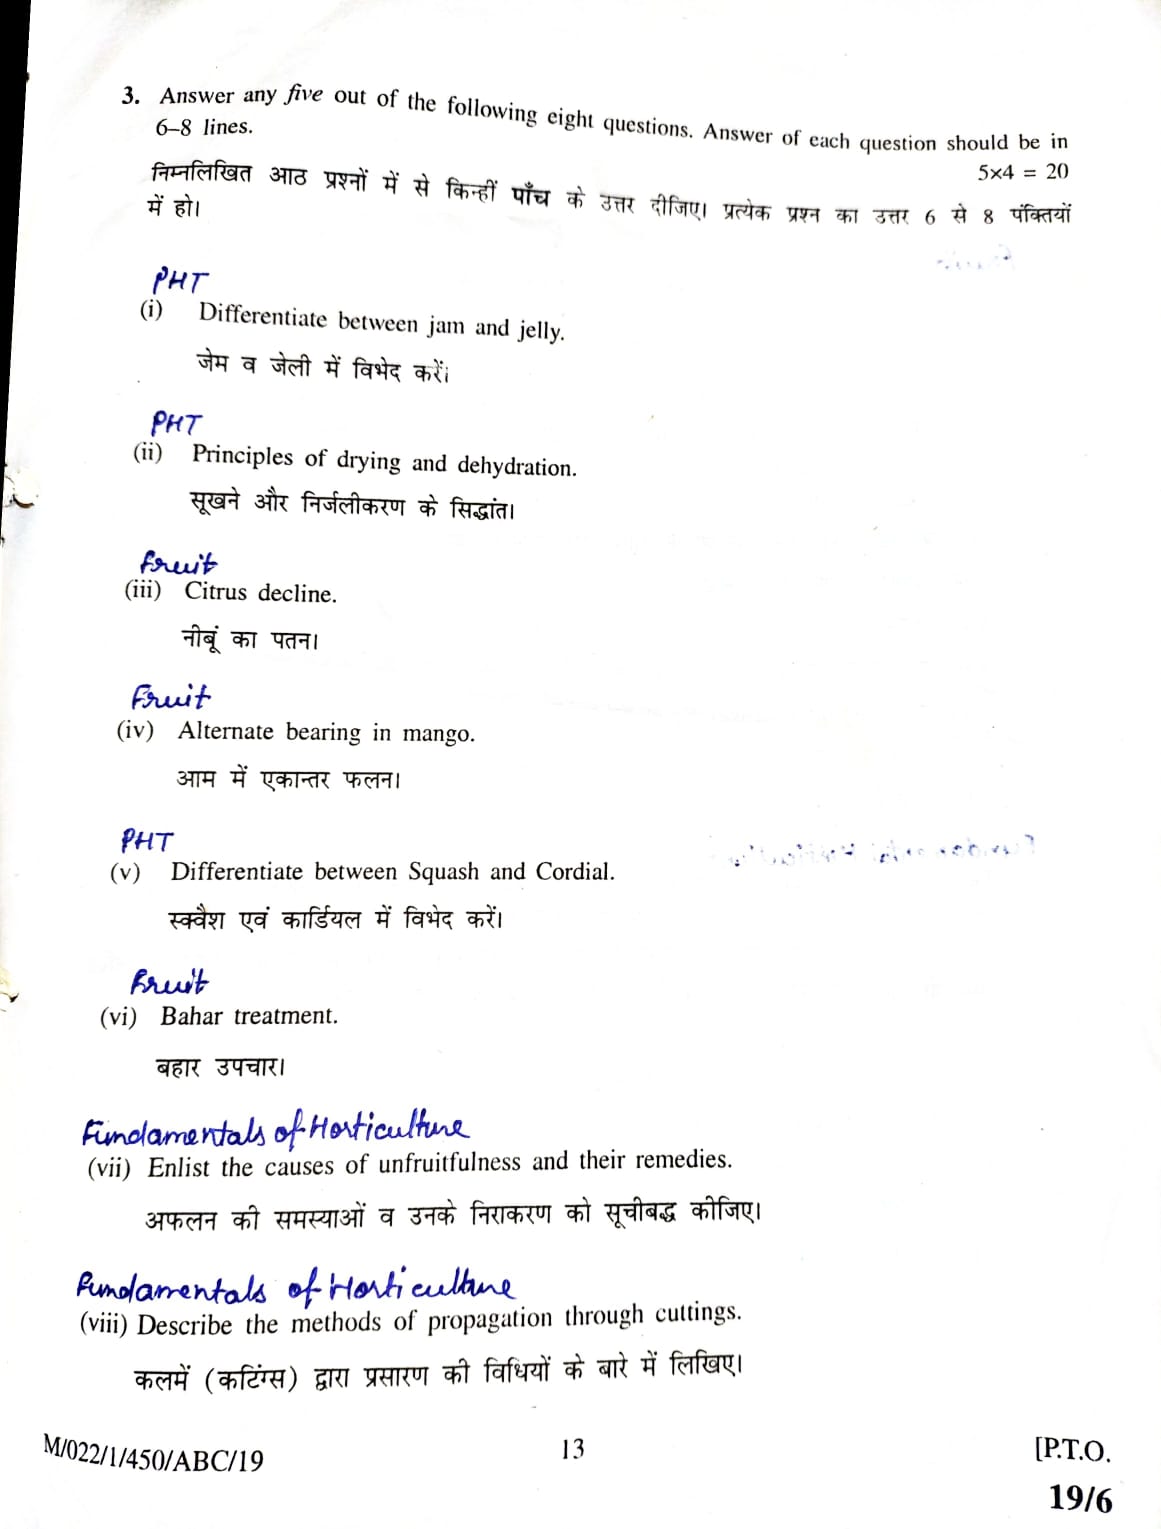 3. Answer any five out of the following eight questions. Answer of each question should be in
6–8 lines.
5×4 = 20
निम्नलिखित आठ प्रश्नों में से किन्हीं पाँच के उत्तर दीजिए। प्रत्येक प्रश्न का उत्तर 6 से 8 पंक्तियों
में हो।
PHT
(i) Differentiate between jam and jelly.
जेम व जेली में विभेद करें।
PHT
(ii) Principles of drying and dehydration.
सूखने और निर्जलीकरण के सिद्धांत।
Fruit
(iii) Citrus decline.
नीबूं का पतन।
Fruit
(iv) Alternate bearing in mango.
आम में एकान्तर फलन।
PHT
(v) Differentiate between Squash and Cordial.
स्क्वैश एवं कार्डियल में विभेद करें।
Fruit
(vi) Bahar treatment.
बहार उपचार।
Fundamentals of Horticulture
(vii) Enlist the causes of unfruitfulness and their remedies.
अफलन की समस्याओं व उनके निराकरण को सूचीबद्ध कीजिए।
Fundamentals of Horticulture
(viii) Describe the methods of propagation through cuttings.
कलमें (कटिंग्स) द्वारा प्रसारण की विधियों के बारे में लिखिए।
M/022/1/450/ABC/19
13
[P.T.O.
19/6